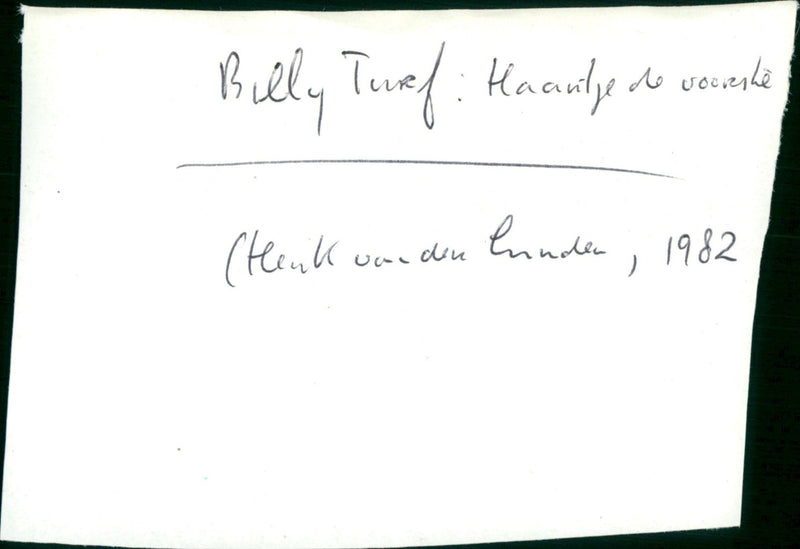 Billy Turf: Haantje de voorste
(Henk van der Linden, 1982